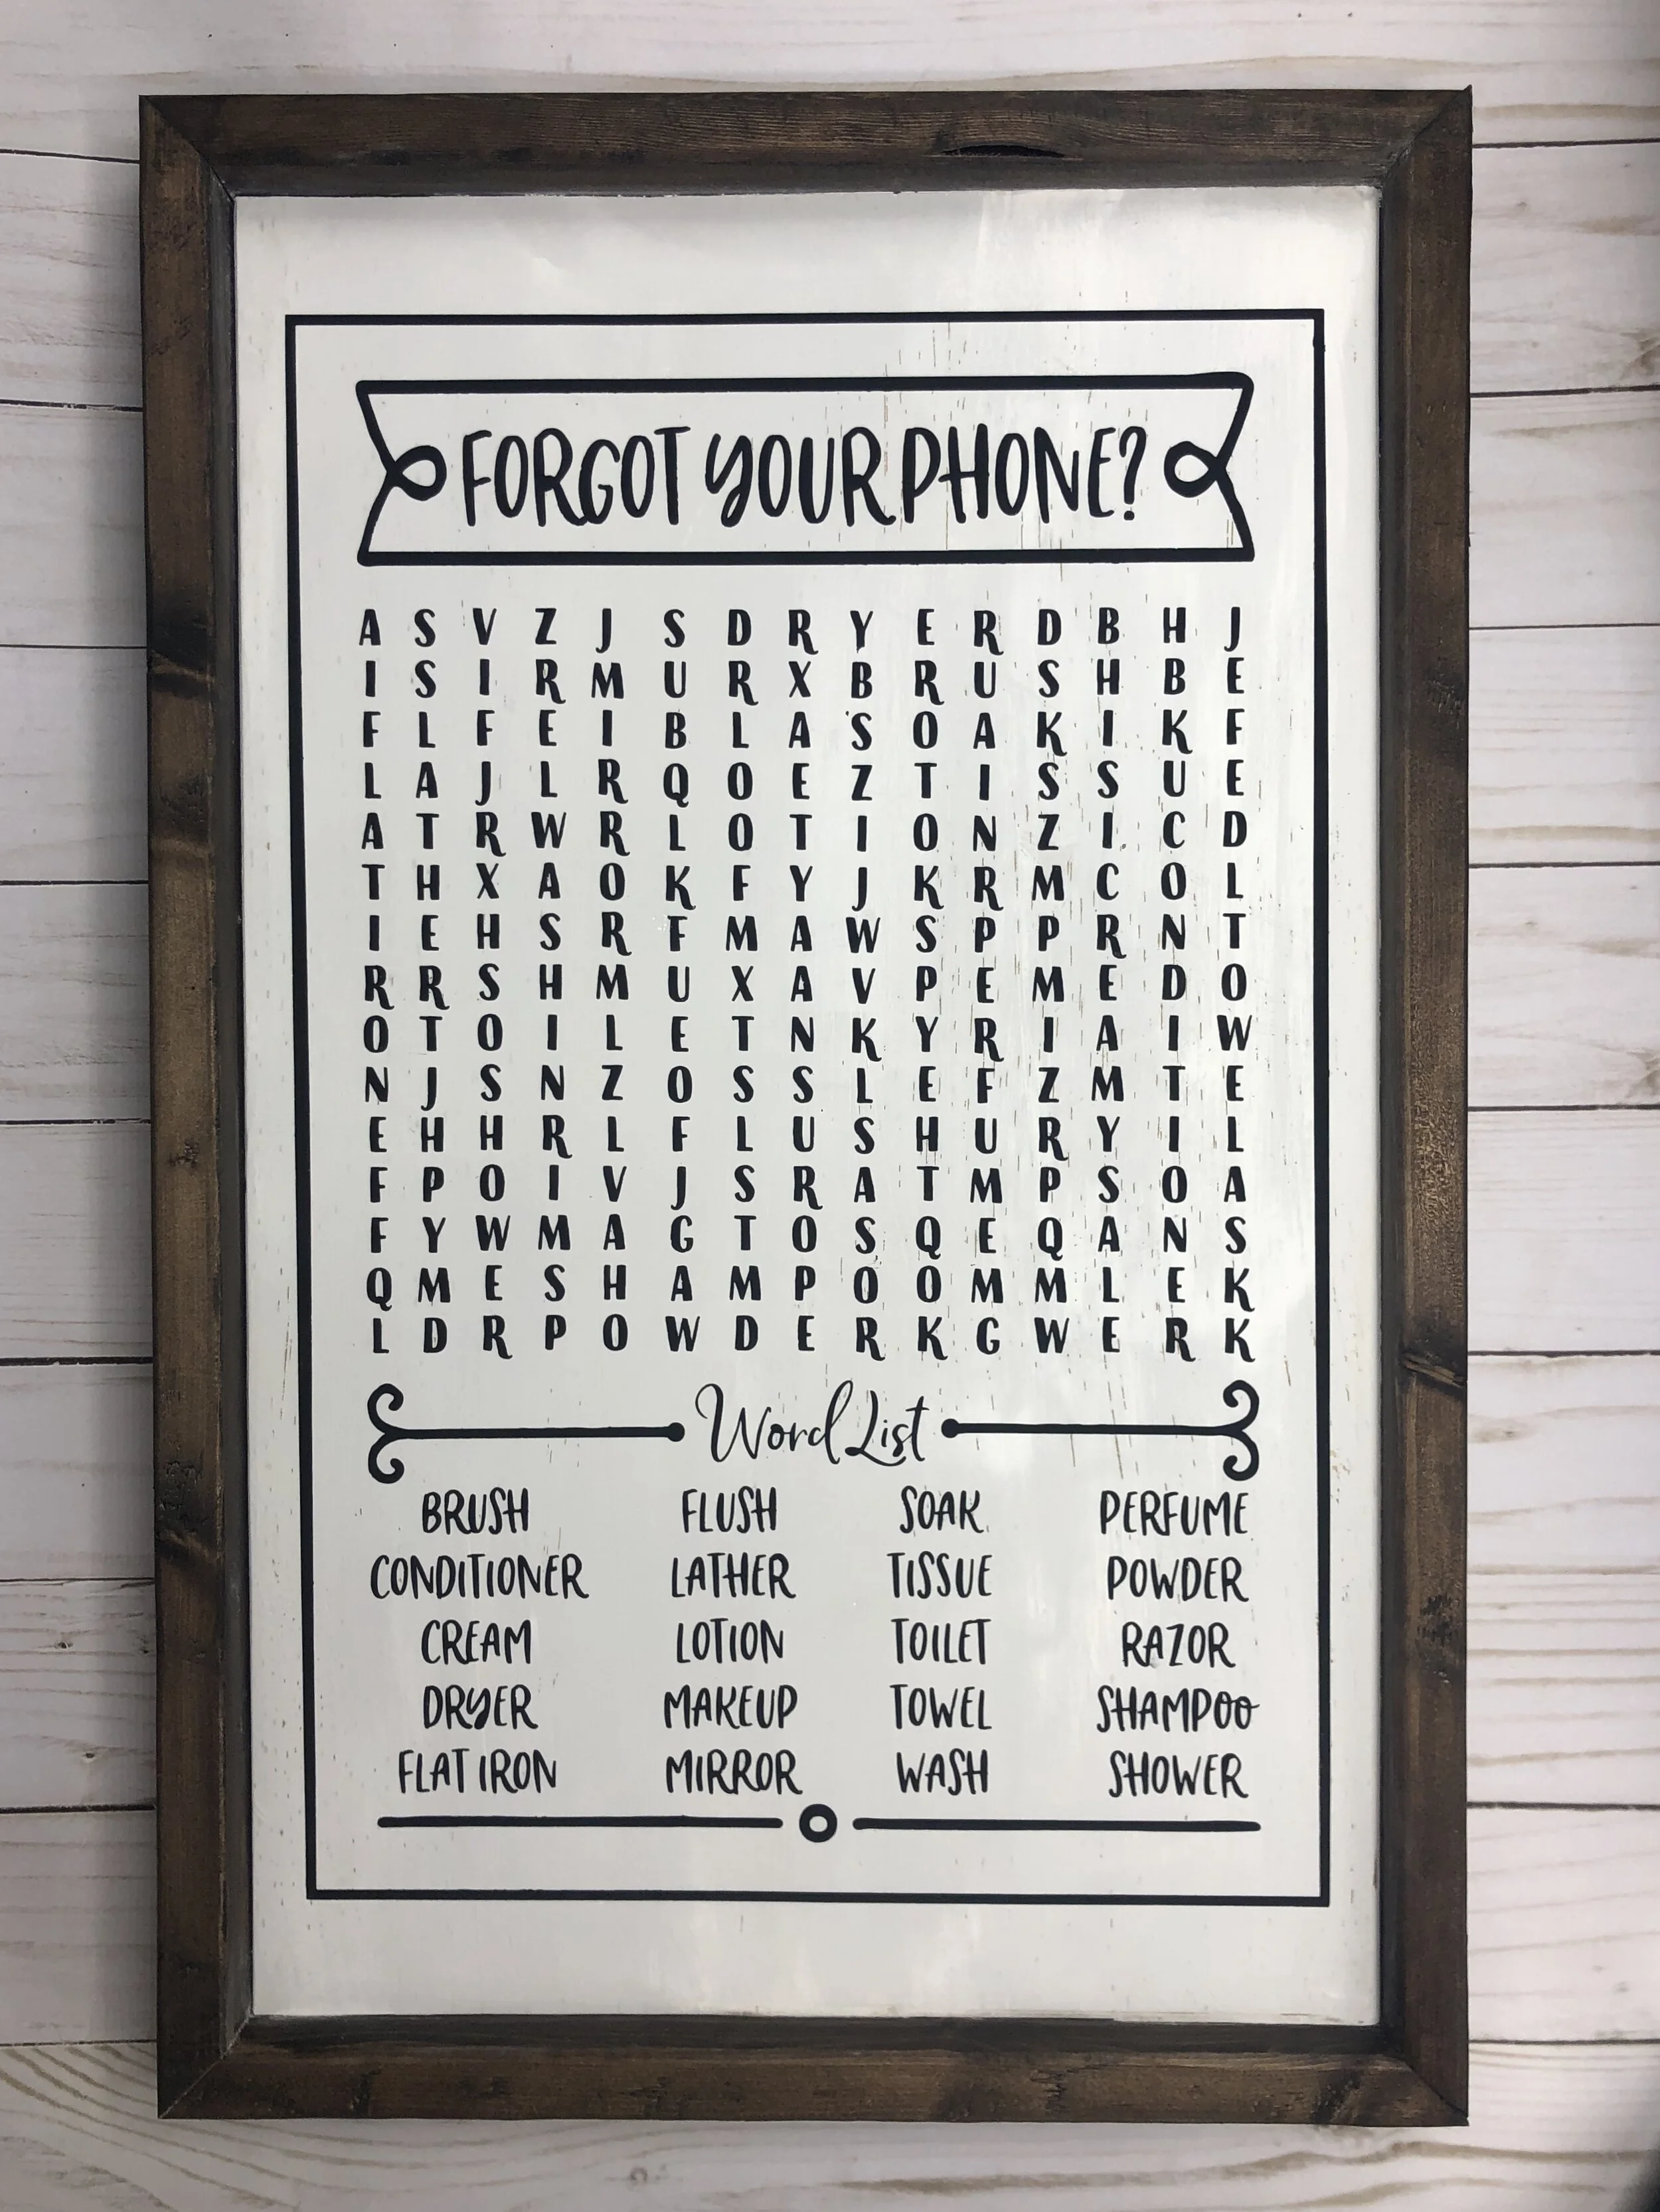 FORGOT YOUR PHONE?
A S V Z J S D R Y E R D B H J
I S I R M U R X B R U S H B E
F L F E I B L A S O A K I K F
L A J L R Q O E Z T I S S U E
A T R W R L O T I O N Z I C D
T H X A O K F Y J K R M C O L
I E H S R F M A W S P P R N T
R R S H M U X A V P E M E D O
O T O I L E T N K Y R I A I W
N J S N Z O S S L E F Z M T E
E H H R L F L U S H U R Y I L
F P O I V J S R A T M P S O A
F Y W M A G T O S Q E Q A N S
Q M E S H A M P O O M M L E K
L D R P O W D E R K G W E R K
Word List
BRUSH FLUSH SOAK PERFUME
CONDITIONER LATHER TISSUE POWDER
CREAM LOTION TOILET RAZOR
DRYER MAKEUP TOWEL SHAMPOO
FLAT IRON MIRROR WASH SHOWER